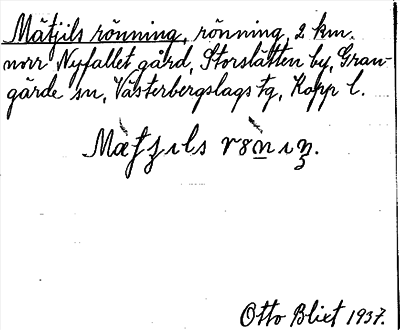 Mätjils rönning, rönning, 2 km.
norr Nyfallet gård, Storslätten by, Gran-
gärde sn, Västerbergslags fg, Kopp l.
Otto Blixt 1937.